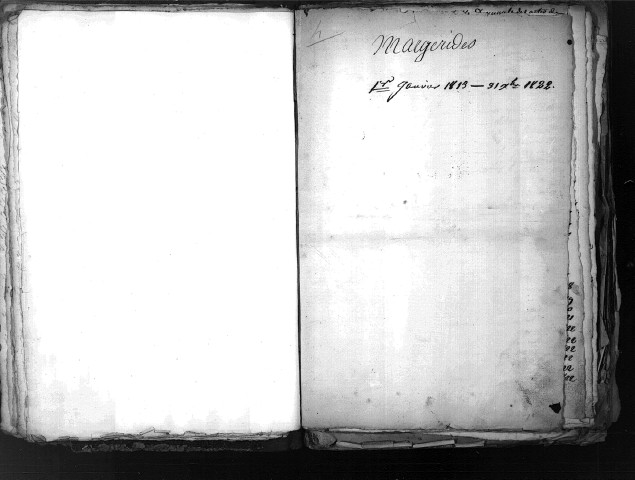 Margerides
1er Janvier 1813 — 31 xbre 1822.